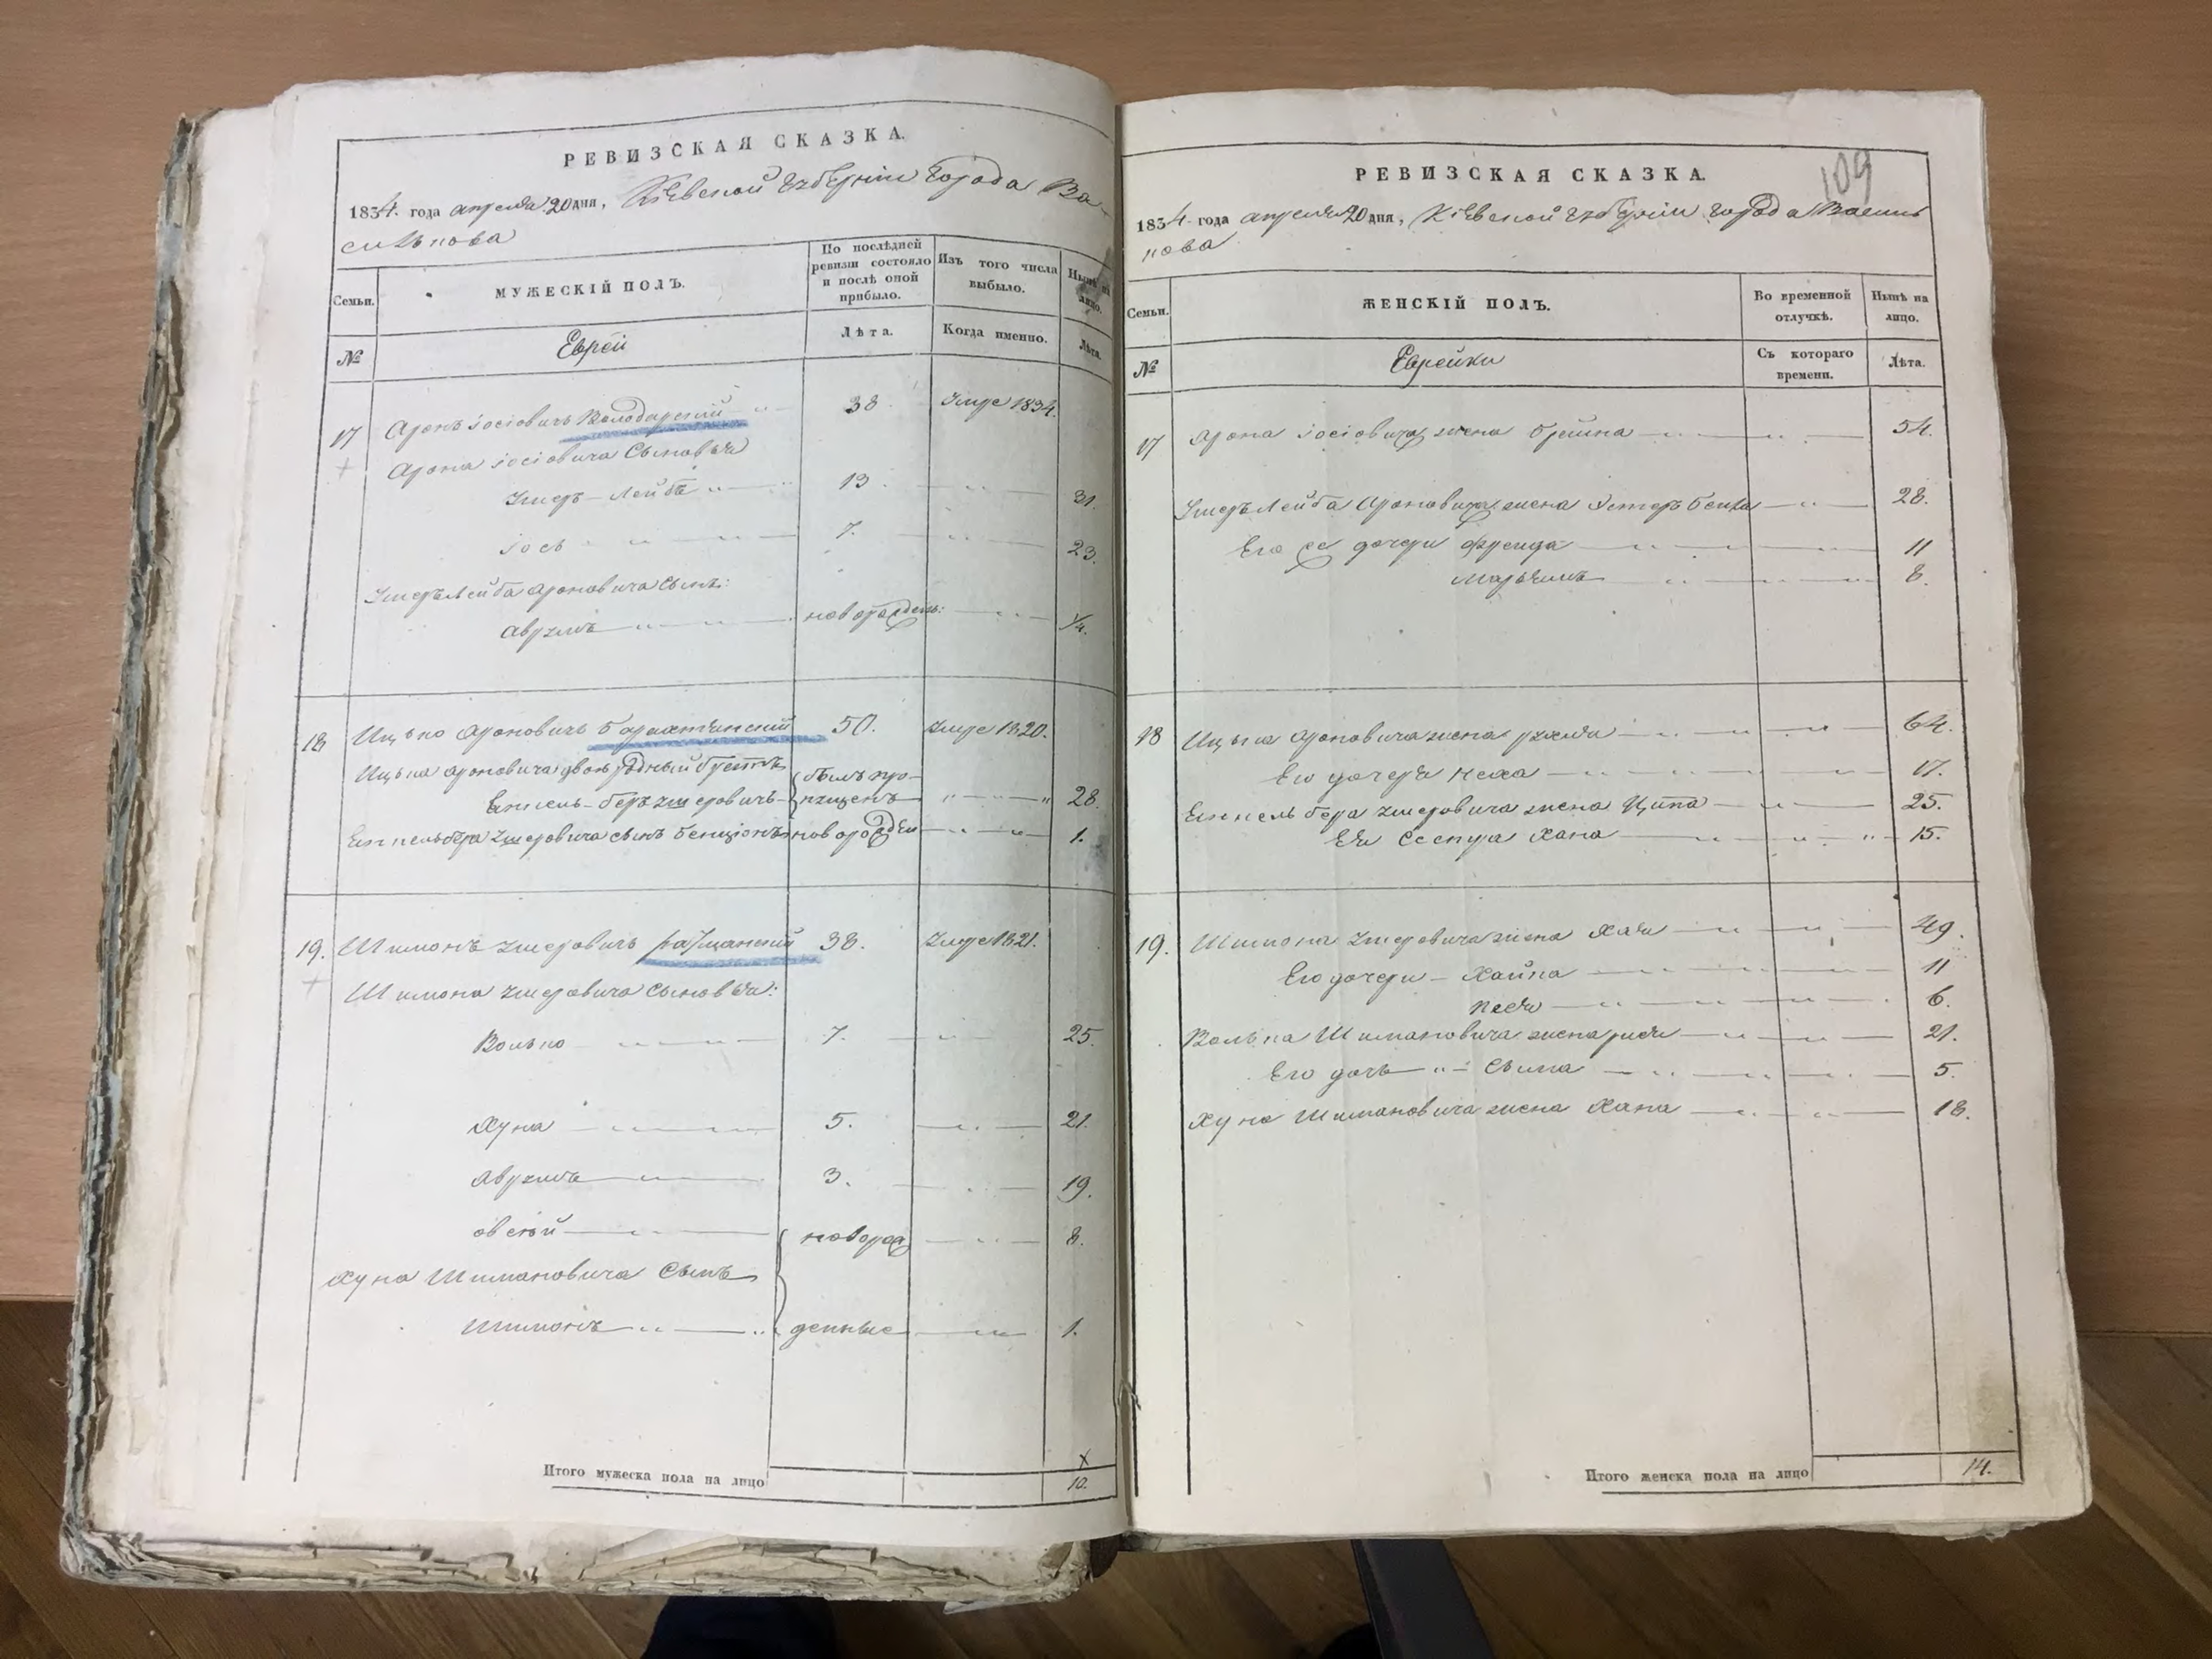 РЕВИЗСКАЯ СКАЗКА.
1834. года апреля 20 дня, Кіевской Губерніи Города Ва-
силькова
Семьи.
МУЖЕСКІЙ ПОЛЪ.
По послѣдней ревизіи состояло и послѣ оной прибыло.
Изъ того числа выбыло.
Нынѣ на лицо.
№
Еврей
Лѣта.
Когда именно.
Лѣта.
17 Аронъ Іосіовичъ Володарскій 38. Умре 1834.
Арона Іосіовича Сыновья
Умеръ-Лейба 13. 31.
Іось 7. 23.
Умеръ Лейба Ароновича Сынъ:
Аврумъ новорожден: 1/4.
18 Ицько Ароновичъ Барахтянскій 50. Умре 1820.
Ицька Ароновича двоюродный братъ былъ про-
-Беръ пущенъ 28.
сынъ Бенціонъ новорожден 1.
19. Шимонъ 38. Умре 1821.
Шимона Сыновья:
Волько 7. 25.
Хуна 5. 21.
Аврумъ 3. 19.
Овсій новорож 8.
Хуна Шимановича Сынъ
Шимонъ денные 1.
Итого мужеска пола на лицо
X
10.
109
РЕВИЗСКАЯ СКАЗКА.
1834 года апреля 20 дня, Кіевской Губерніи города Василь
кова
Семьи.
ЖЕНСКІЙ ПОЛЪ.
Во временной отлучкѣ.
Нынѣ на лицо.
№
Еврейки
Съ котораго времени.
Лѣта.
17 Арона Іосіовича жена 54.
Умеръ Лейба Ароновича жена Эстеръ Бейла 28.
Его дочери Фрейда 11
Марьямъ 8.
18 Ицька Ароновича жена Рухля 64.
Его дочеря Неха 17.
жена Ципа 25.
Ея Сестра Хана 15.
19. Шимона жена Хая 49.
Его дочери - Хайка 11
Песя 6.
Волька Шимановича жена 21.
Его дочь Сима 5.
Хуна Шимановича жена Хана 18.
Итого женска пола на лицо 14.